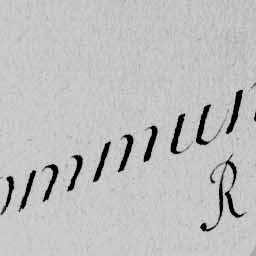 ommun
R